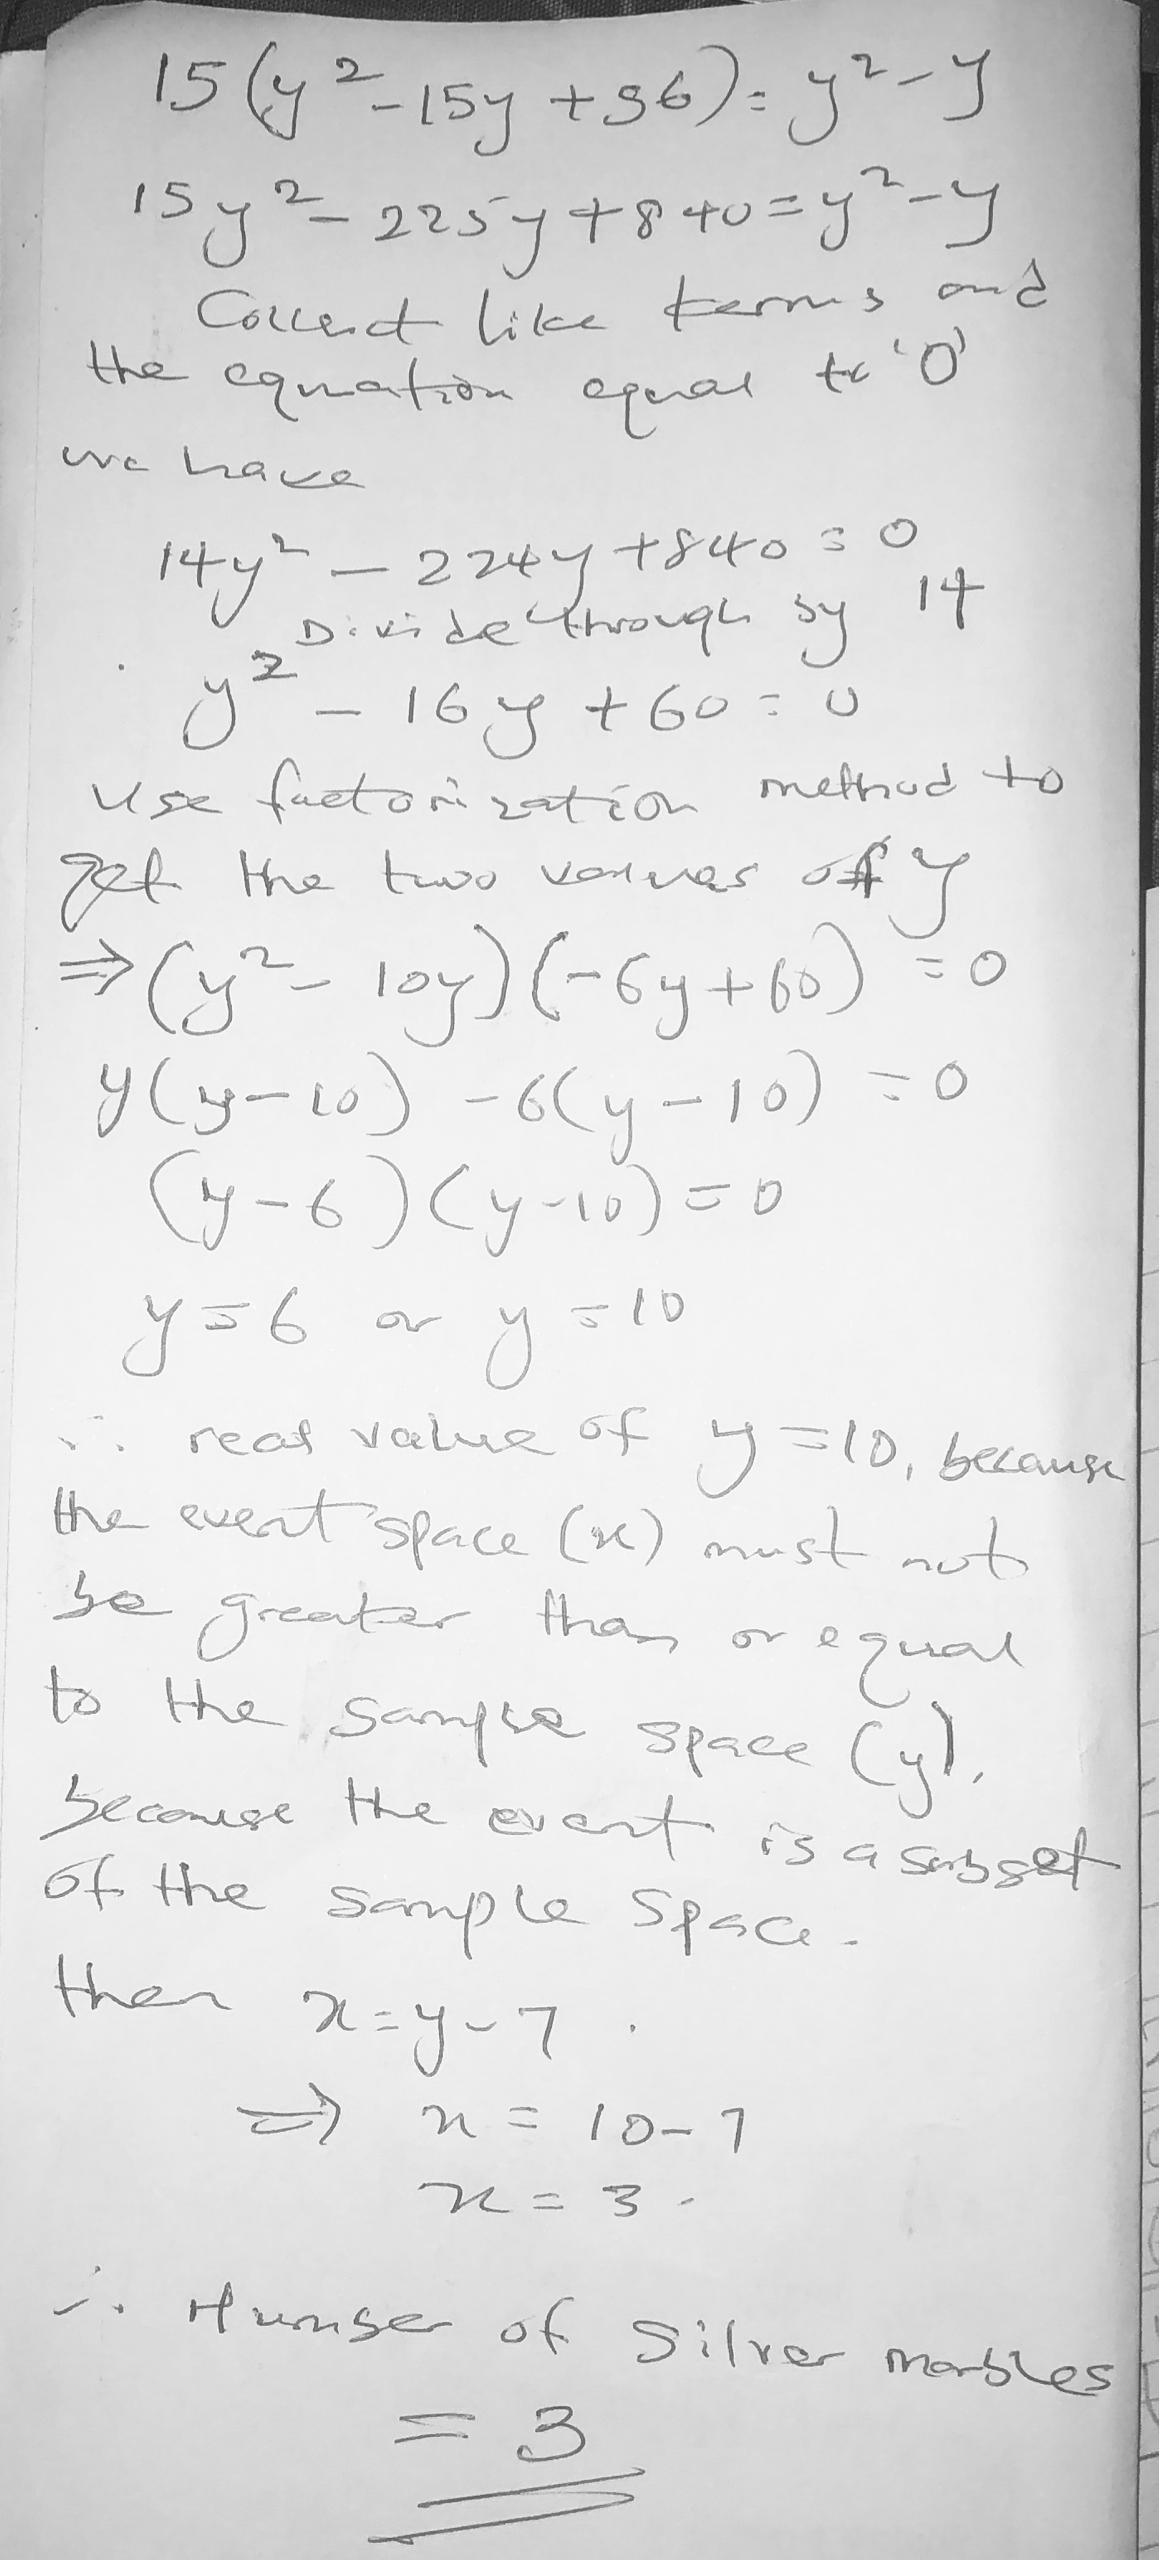 15(y²-15y+56)=y²-y
15y²-225y+840=y²-y
Collect like terms and
the equation equal to '0'
we have
14y²-224y+840=0
Divide through by 14
y²-16y+60=0
use factorization method to
get the two values of y
⇒(y²-10y)(-6y+60)=0
y(y-10)-6(y-10)=0
(y-6)(y-10)=0
y=6 or y=10
∴ real value of y=10, because
the event space (x) must not
be greater than or equal
to the sample space (y),
because the event is a subset
of the sample space.
then x=y-7.
⇒ x=10-7
x=3.
∴ Number of Silver marbles
=3